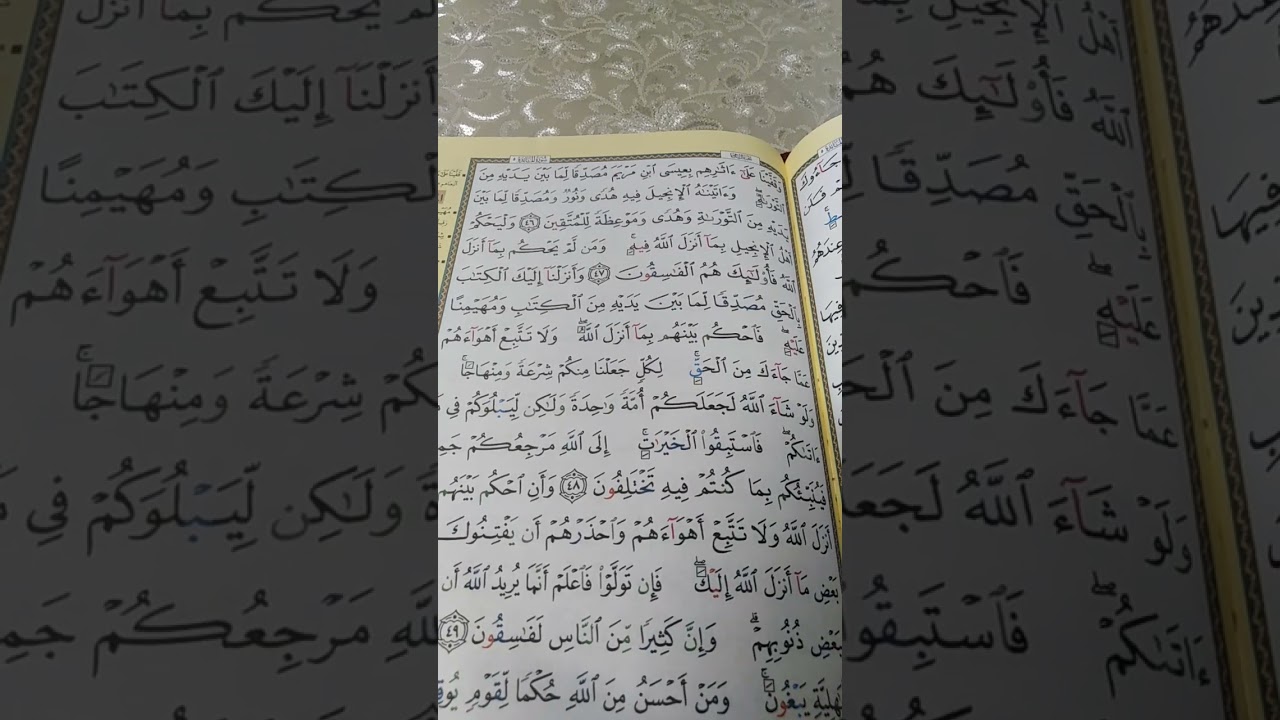 وَقَفَّيۡنَا عَلَىٰٓ ءَاثَٰرِهِم بِعِيسَى ٱبۡنِ مَرۡيَمَ مُصَدِّقٗا لِّمَا بَيۡنَ يَدَيۡهِ مِنَ
ٱلتَّوۡرَىٰةِۖ وَءَاتَيۡنَٰهُ ٱلۡإِنجِيلَ فِيهِ هُدٗى وَنُورٞ وَمُصَدِّقٗا لِّمَا بَيۡنَ
يَدَيۡهِ مِنَ ٱلتَّوۡرَىٰةِ وَهُدٗى وَمَوۡعِظَةٗ لِّلۡمُتَّقِينَ ٤٦ وَلۡيَحۡكُمۡ
أَهۡلُ ٱلۡإِنجِيلِ بِمَآ أَنزَلَ ٱللَّهُ فِيهِۚ وَمَن لَّمۡ يَحۡكُم بِمَآ أَنزَلَ
ٱللَّهُ فَأُوْلَٰٓئِكَ هُمُ ٱلۡفَٰسِقُونَ ٤٧ وَأَنزَلۡنَآ إِلَيۡكَ ٱلۡكِتَٰبَ
بِٱلۡحَقِّ مُصَدِّقٗا لِّمَا بَيۡنَ يَدَيۡهِ مِنَ ٱلۡكِتَٰبِ وَمُهَيۡمِنًا
عَلَيۡهِۖ فَٱحۡكُم بَيۡنَهُم بِمَآ أَنزَلَ ٱللَّهُۖ وَلَا تَتَّبِعۡ أَهۡوَآءَهُمۡ
عَمَّا جَآءَكَ مِنَ ٱلۡحَقِّۚ لِكُلّٖ جَعَلۡنَا مِنكُمۡ شِرۡعَةٗ وَمِنۡهَاجٗاۚ
وَلَوۡ شَآءَ ٱللَّهُ لَجَعَلَكُمۡ أُمَّةٗ وَٰحِدَةٗ وَلَٰكِن لِّيَبۡلُوَكُمۡ فِي
ءَاتَىٰكُمۡۖ فَٱسۡتَبِقُواْ ٱلۡخَيۡرَٰتِۚ إِلَى ٱللَّهِ مَرۡجِعُكُمۡ
فَيُنَبِّئُكُم بِمَا كُنتُمۡ فِيهِ تَخۡتَلِفُونَ ٤٨ وَأَنِ ٱحۡكُم بَيۡنَهُم
أَنزَلَ ٱللَّهُ وَلَا تَتَّبِعۡ أَهۡوَآءَهُمۡ وَٱحۡذَرۡهُمۡ أَن يَفۡتِنُوكَ
بَعۡضِ مَآ أَنزَلَ ٱللَّهُ إِلَيۡكَۖ فَإِن تَوَلَّوۡاْ فَٱعۡلَمۡ أَنَّمَا يُرِيدُ ٱللَّهُ أَن
بِبَعۡضِ ذُنُوبِهِمۡۗ وَإِنَّ كَثِيرٗا مِّنَ ٱلنَّاسِ لَفَٰسِقُونَ ٤٩
يَبۡغُونَۚ وَمَنۡ أَحۡسَنُ مِنَ ٱللَّهِ حُكۡمٗا لِّقَوۡمٖ